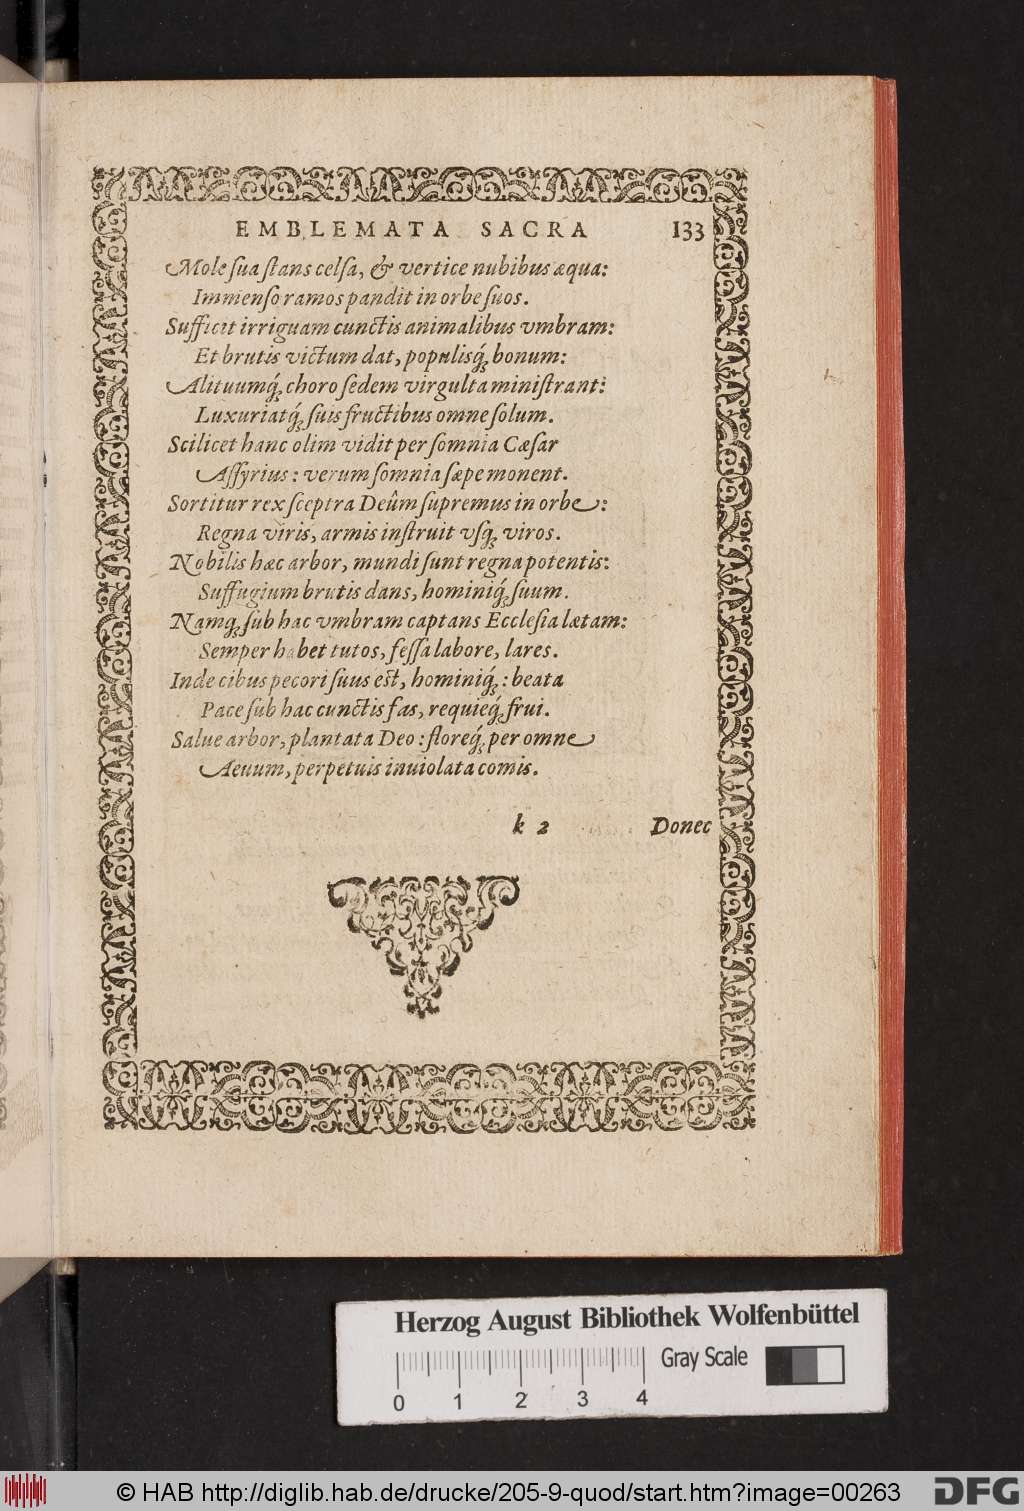 EMBLEMATA SACRA 133
Mole sua ſtans celſa, & vertice nubibus æqua:
Immenſo ramos pandit in orbe ſuos.
Sufficit irriguam cunctis animalibus vmbram:
Et brutis victum dat, populisq́; bonum:
Alituumq́; choro ſedem virgulta miniſtrant:
Luxuriatq́; ſuis fructibus omne ſolum.
Scilicet hanc olim vidit per ſomnia Cæſar
Aſſyrius: verum ſomnia ſæpe monent.
Sortitur rex ſceptra Deûm ſupremus in orbe:
Regna viris, armis inſtruit vſq; viros.
Nobilis hæc arbor, mundi ſunt regna potentis:
Suffugium brutis dans, hominiq́; ſuum.
Namq; ſub hac vmbram captans Eccleſia lætam:
Semper habet tutos, feſſa labore, lares.
Inde cibus pecori ſuus est, hominiq́;: beata
Pace ſub hac cunctis fas, requieq́; frui.
Salue arbor, plantata Deo: floreq́; per omne
Aeuum, perpetuis inuiolata comis.
k 2 Donec
Herzog August Bibliothek Wolfenbüttel
Gray Scale
0 1 2 3 4
© HAB http://diglib.hab.de/drucke/205-9-quod/start.htm?image=00263 DFG